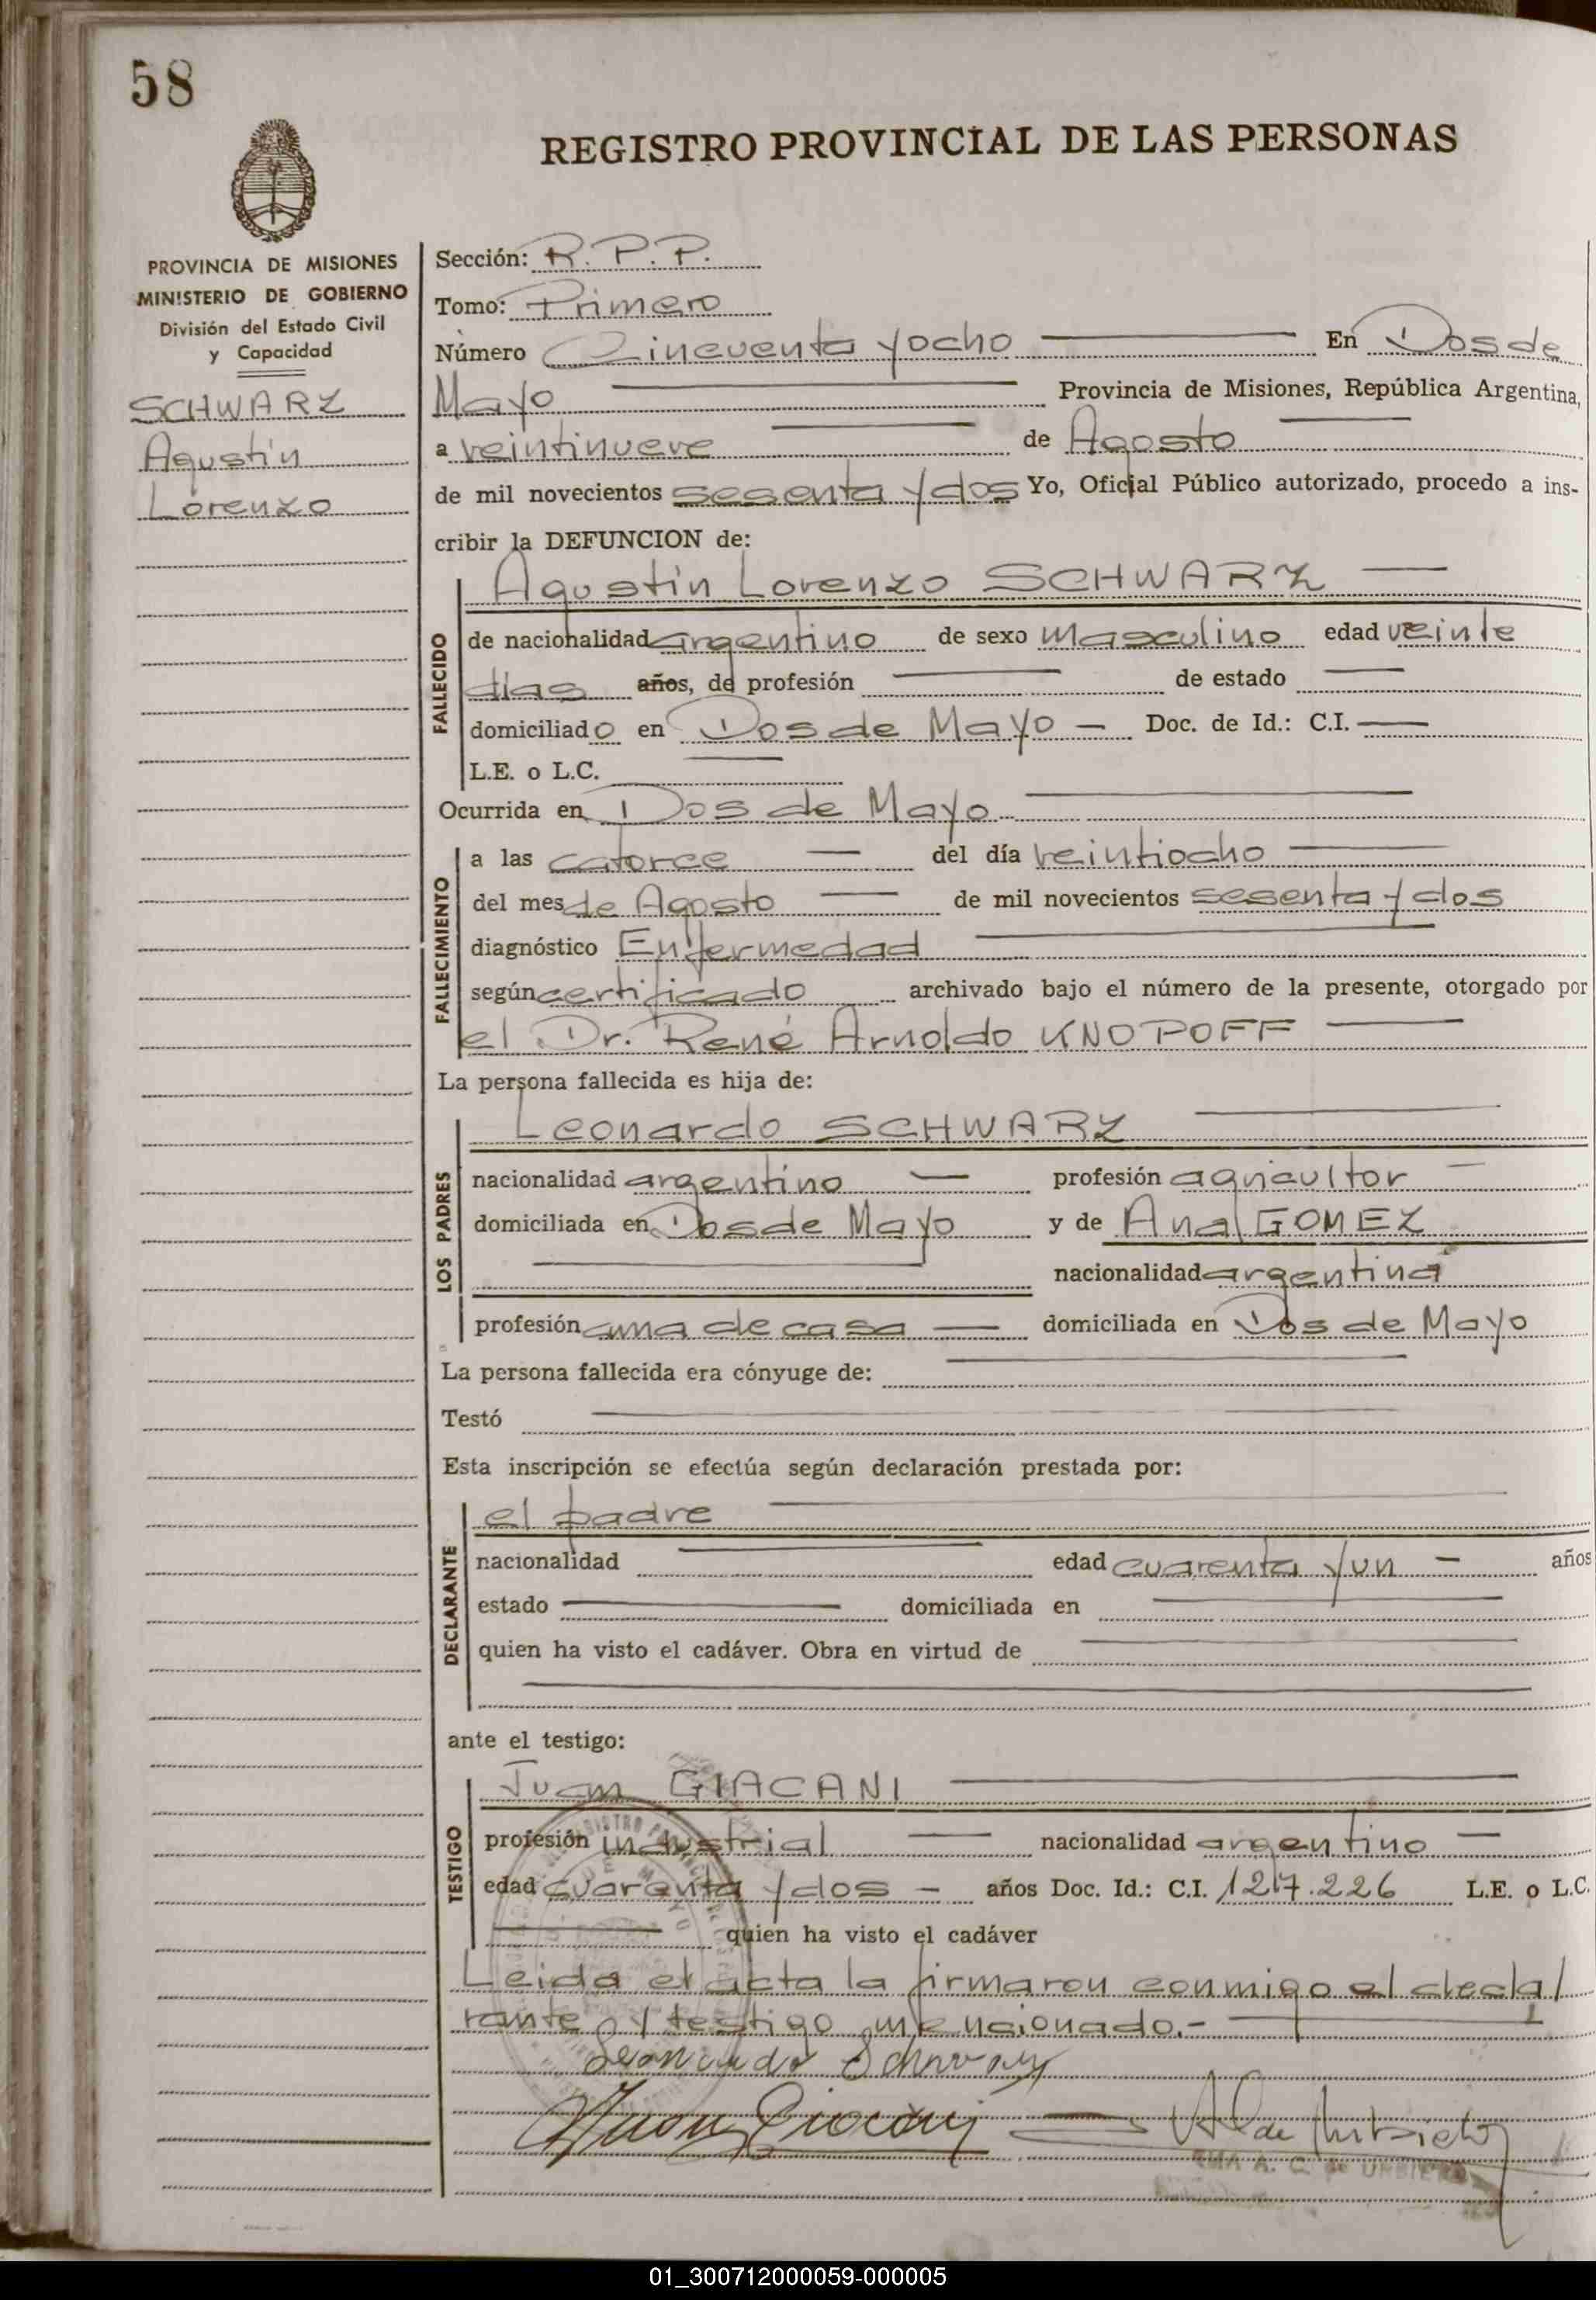 58
REGISTRO PROVINCIAL DE LAS PERSONAS
PROVINCIA DE MISIONES
MINISTERIO DE GOBIERNO
División del Estado Civil
y Capacidad
SCHWARZ
Agustín
Lorenzo
Sección: R. P. P.
Tomo: Primero
Número Cincuenta y ocho En Dos de
Mayo Provincia de Misiones, República Argentina,
a veintinueve de Agosto
de mil novecientos sesenta y dos Yo, Oficial Público autorizado, procedo a ins-
cribir la DEFUNCION de:
Agustín Lorenzo SCHWARZ
FALLECIDO
de nacionalidad argentino de sexo masculino edad veinte
días años, de profesión de estado
domiciliado en Dos de Mayo - Doc. de Id.: C.I.
L.E. o L.C.
Ocurrida en Dos de Mayo
FALLECIMIENTO
a las catorce del día veintiocho
del mes de Agosto de mil novecientos sesenta y dos
diagnóstico Enfermedad
según certificado archivado bajo el número de la presente, otorgado por
el Dr. René Arnoldo KNOPOFF
La persona fallecida es hija de:
LOS PADRES
Leonardo SCHWARZ
nacionalidad argentino profesión agricultor
domiciliada en Dos de Mayo y de Ana GOMEZ
nacionalidad argentina
profesión ama de casa domiciliada en Dos de Mayo
La persona fallecida era cónyuge de:
Testó
Esta inscripción se efectúa según declaración prestada por:
DECLARANTE
el padre
nacionalidad edad cuarenta y un - años
estado domiciliada en
quien ha visto el cadáver. Obra en virtud de
ante el testigo:
TESTIGO
Juan GIACANI
profesión industrial nacionalidad argentino
edad cuarenta y dos - años Doc. Id.: C.I. 1217.226 L.E. o L.C.
quien ha visto el cadáver
Leida el acta la firmaron conmigo el decla
rante y testigo mencionado.-
Leonardo Schwarz
Juan Giacani
01_300712000059-000005